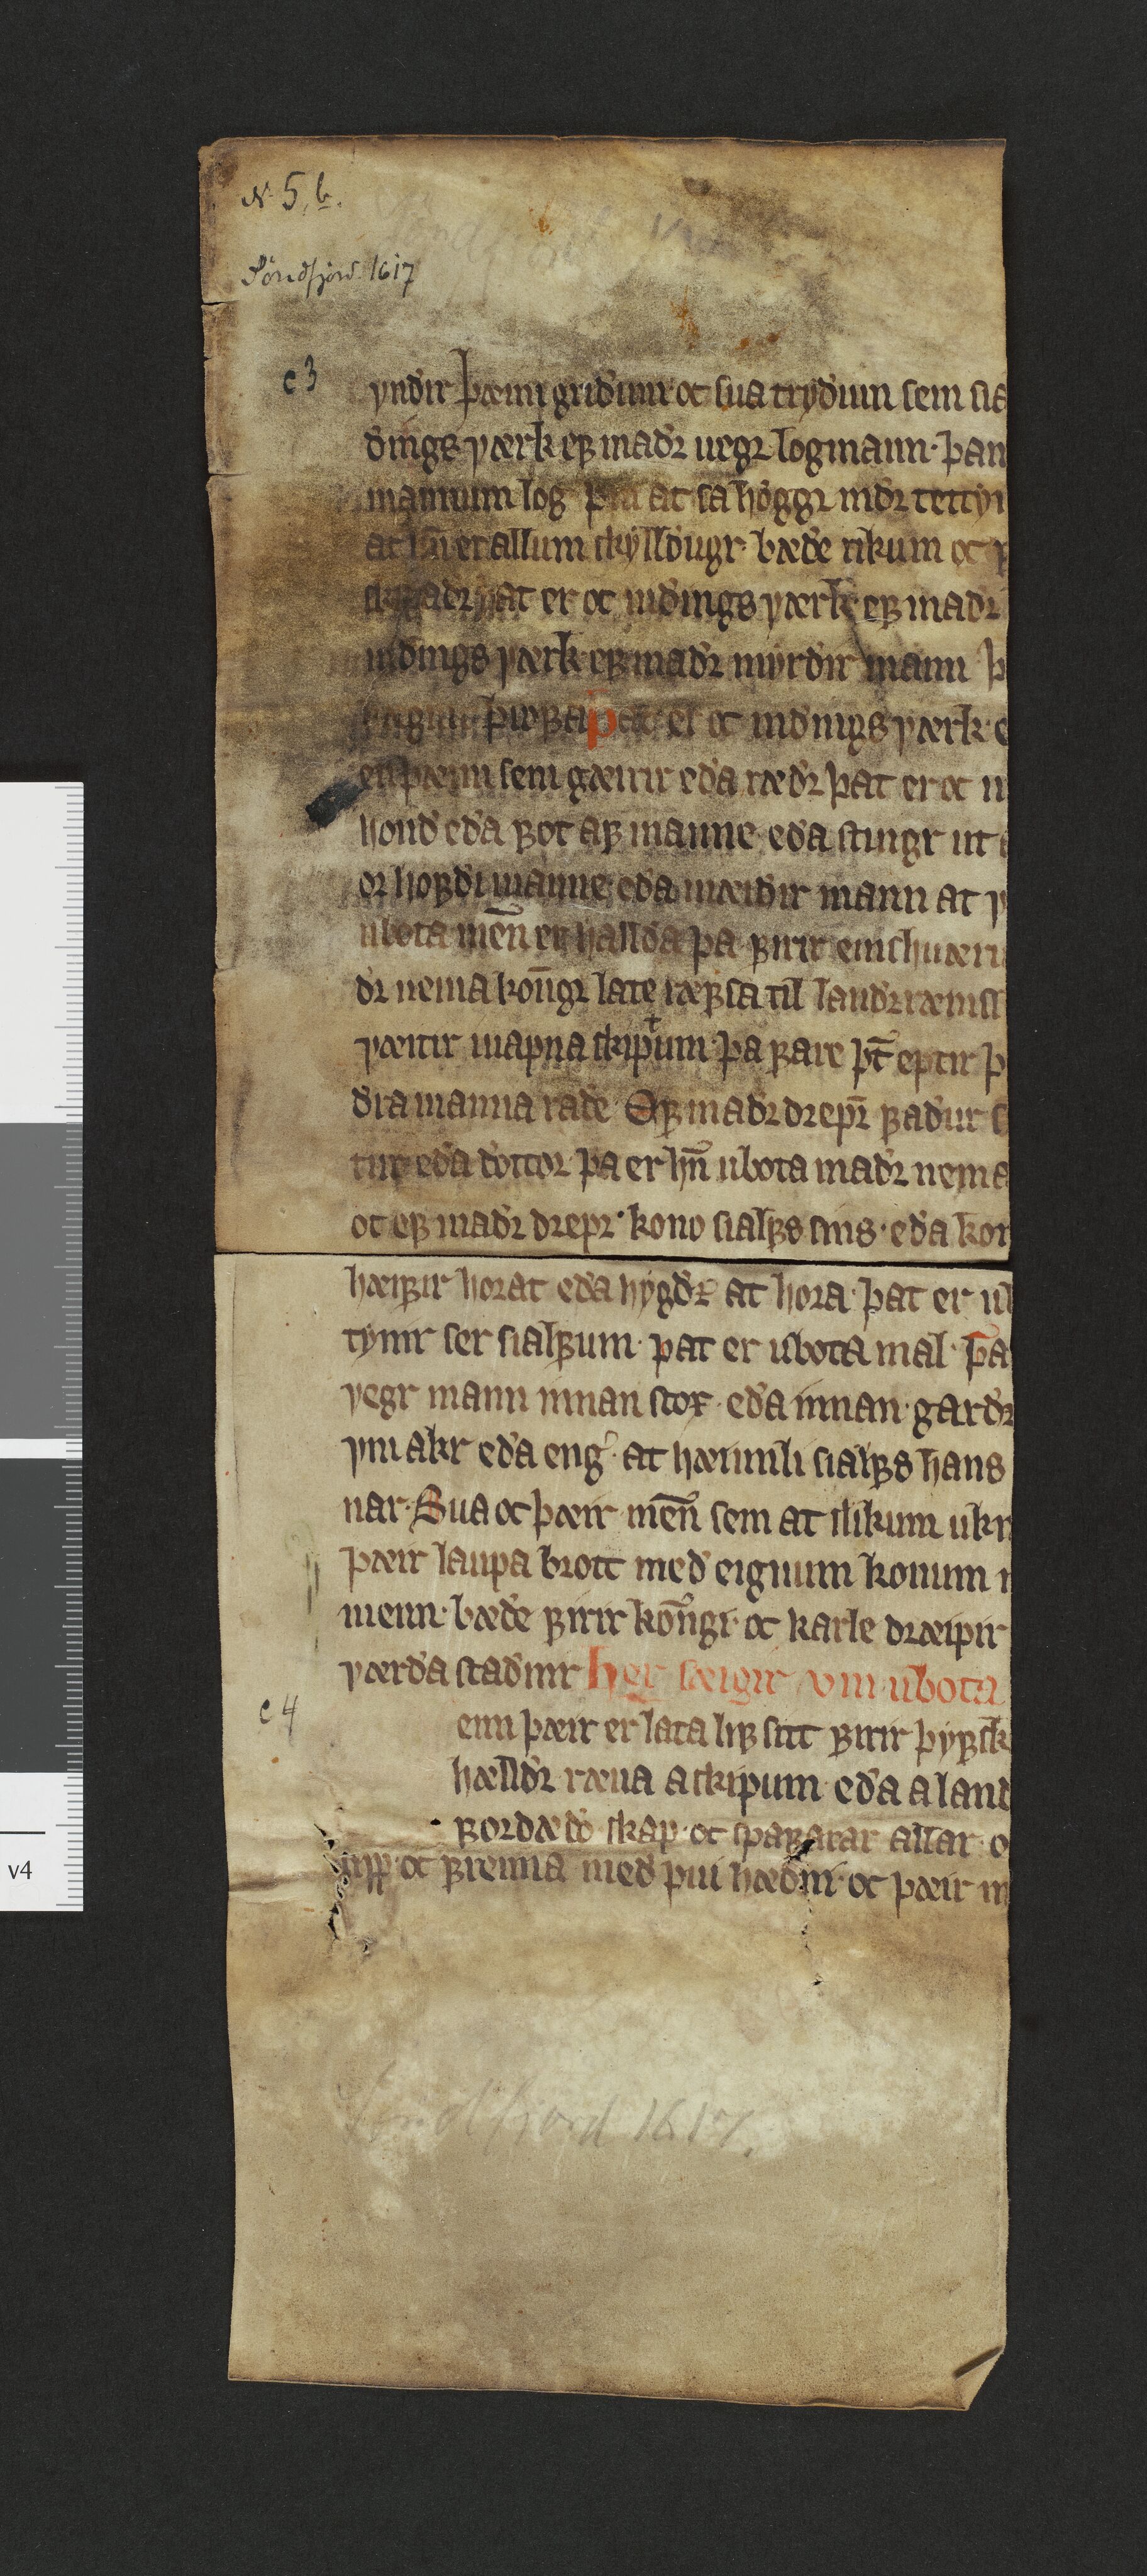 N. 5, b.
Söndfjord. 1617
c 3
yndir þæim gridum oc sua trydum sem sia
dings værk eꝼ madr uegr logmann· þan
mannum log þui at sa hoggr nidr tettyi
at hn̄ er allum skylldugr bæde rikum oc
þat er oc nidings værk eꝼ madr
nidings værk eꝼ madr myrdir mann þ
þat er oc nidings værk e
en þæim sem gærir eda rædr þat er oc n
hond eda ꝼot aꝼ manne eda stingr ut
or hoꝼdi manne eda mæidir mann at
ubota men̄ er hallda þa ꝼirir einshuæri
dr nema kon̄gr late ræꝼsa til landrræinsl
væitir uapna skiptum þa ꝼare þt̄ eptir þ
dra manna rade Eꝼ madr drepr̄ ꝼadur s
tur eda dottor þa er hn̄ ubota madr nema
oc eꝼ madr drepr kono sialꝼs sins· eda kon
hæiꝼir horat eda hygdr at hora· þat er ub
tynir ser sialꝼum· þat er ubota mal· þa
vegr mann innan stox· eda innan·gardz
vm akr eda eng· at hæimili sialꝼs hans
nar· Sua oc þæir men̄ sem at slikum ukn
þæir laupa brott med eignum konum
menn· bæde ꝼirir kon̄gi· oc karle dræipir
værda stadnir her sæigir vm ubota
c 4
enn þæir er lata liꝼ sitt ꝼirir þyꝼsk
hælldr ræna a skipum eda a land
ꝼordædo skap· oc spaꝼarar allar· o
upp oc ꝼremia med þui hædni· oc þæir m
Söndfjord 1617.